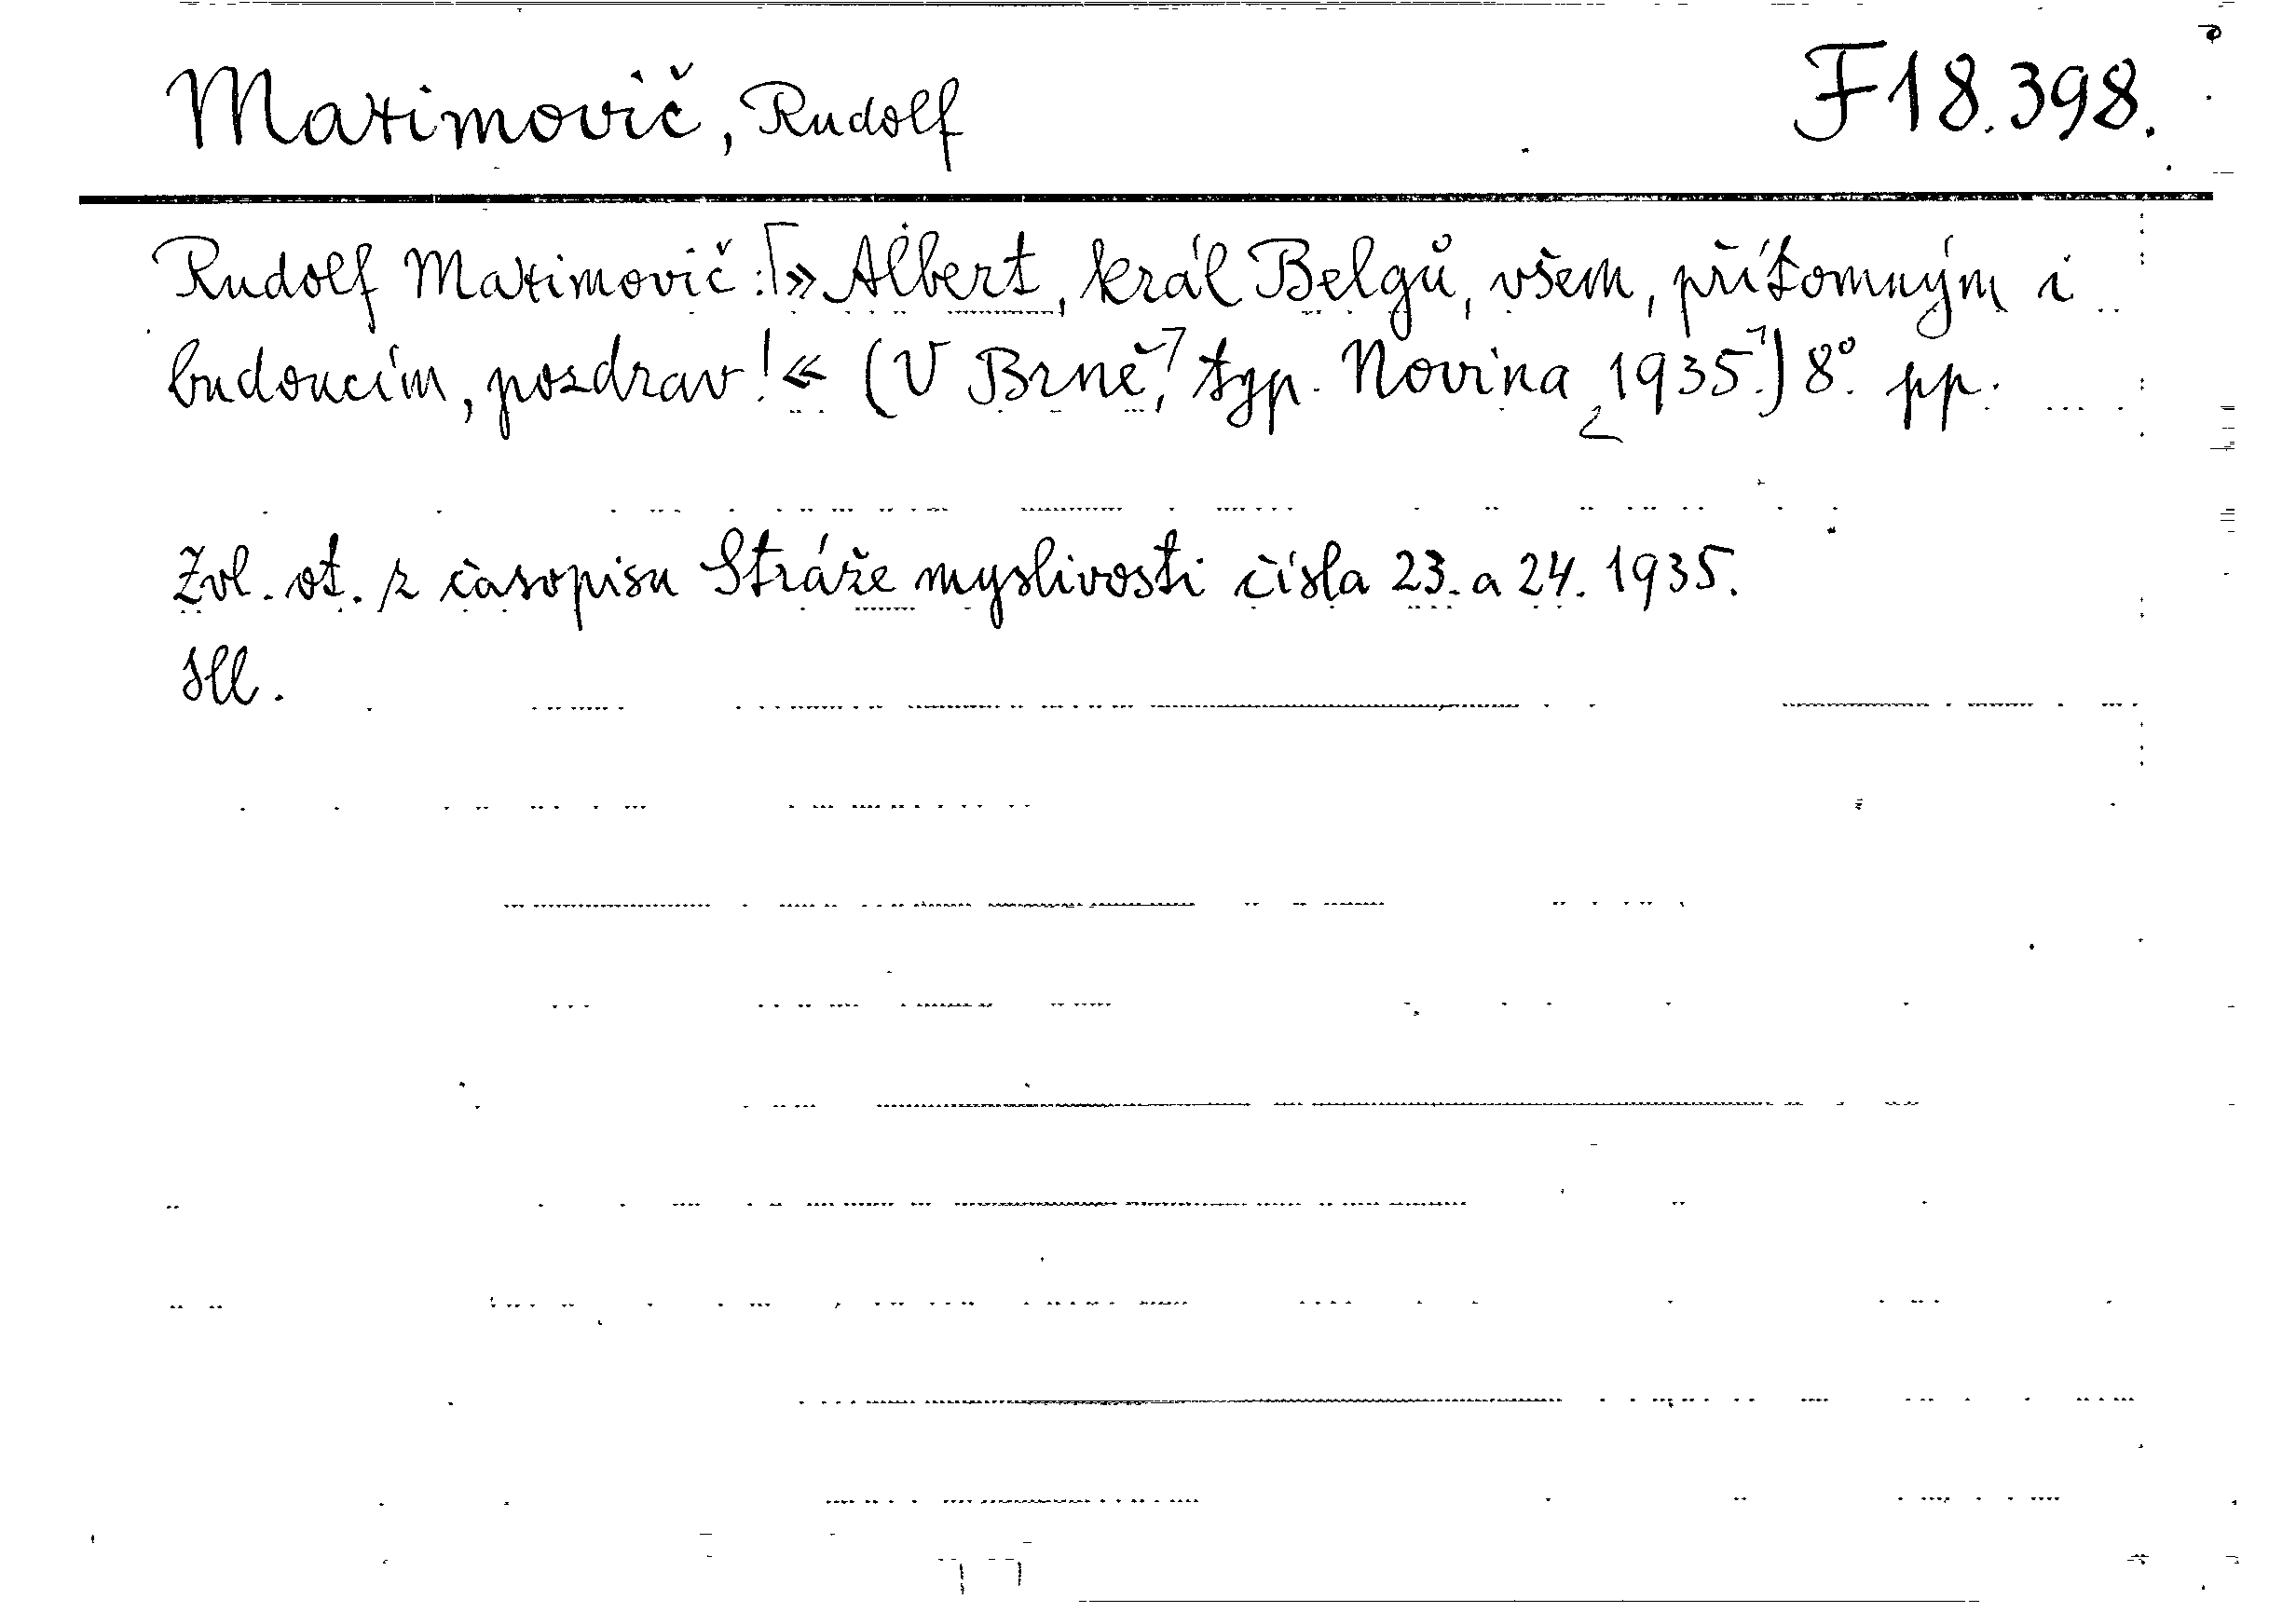 Maximovič, Rudolf F 18.398.
Rudolf Maximovič: »Albert, král Belgů, všem, přítomným i
budoucím, pozdrav!« (V Brně, typ. Novina 1935.) 8° pp.
Zvl. ot. z časopisu Stráže myslivosti čísla 23. a 24. 1935.
Ill.